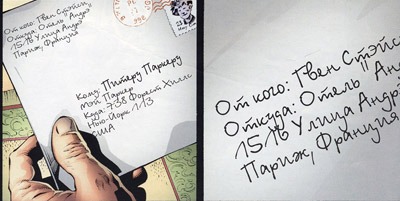 От кого: Гвен Стэйси,
Откуда: Отель "Андрэ
15/16 Улица Андрэ
Париж, Франция
Кому: Питеру Паркеру
Мэй Паркер
Куда: 738 Форест Хиллс
Нью-Йорк 113
США
От кого: Гвен Стэйс
Откуда: Отель "Анд
15/16 Улица Андрэ
Париж, Франция